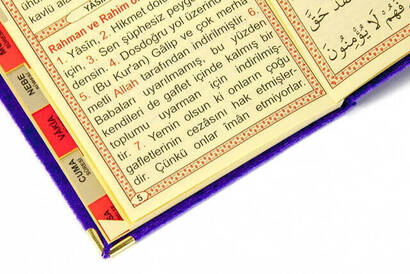 kavlü
YÂSİN
Rahman ve Rahîm
1. Yâsîn. 2. Hikmet dolu
çin. 3. Sen şüphesiz peygam
densin. 4. Dosdoğru yol üzerin
5. (Bu Kur'an) Gâlip ve çok merha
metli Allah tarafından indirilmiştir. 6.
Babaları uyarılmamış, bu yüzden
kendileri de gaflet içinde kalmış bir
toplumu uyarman için indirilmiş-
tir. 7. Yemin olsun ki onların çoğu
gafletlerinin cezâsını hak etmişler-
dir. Çünkü onlar îmân etmiyorlar.
5
فَهُمْ لَا يُؤْمِنُونَ
حَقَّ
NEBE
SÛRESİ
VAKIA
CUMA
SÛRESİ